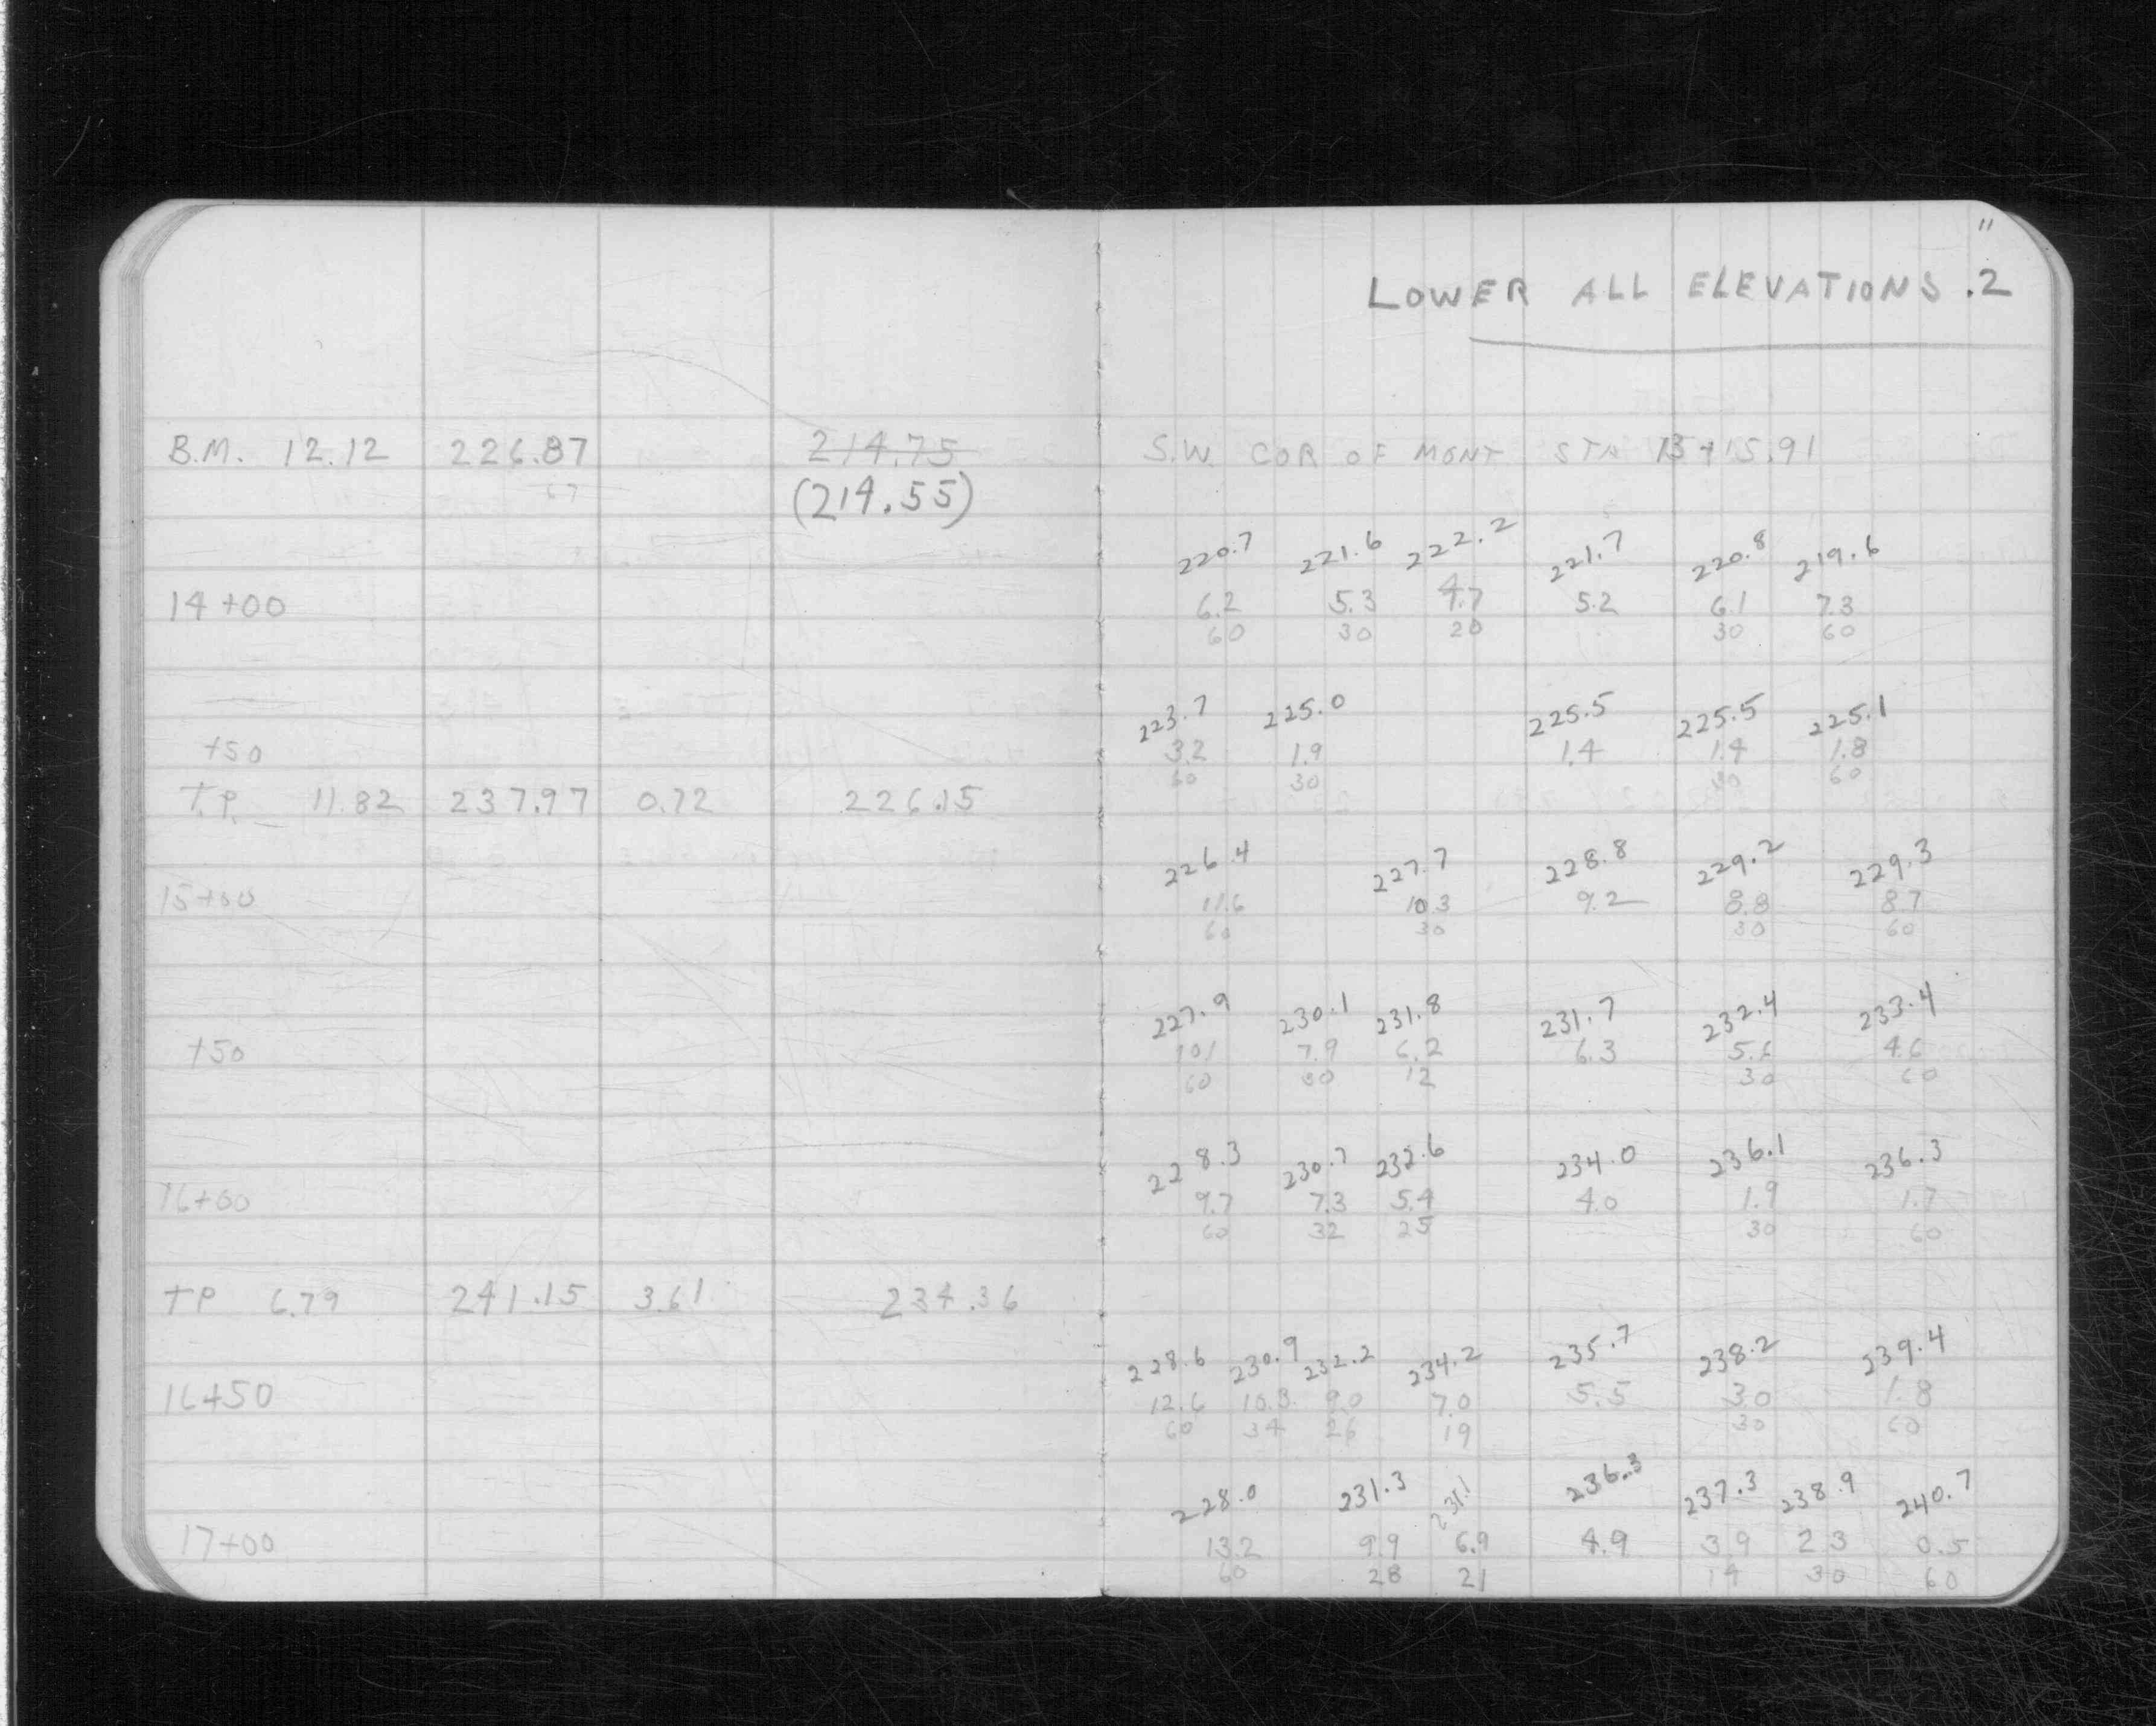 11
LOWER ALL ELEVATIONS .2
B.M. 12.12 226.87 214.75 S.W. COR OF MONT STA 13+15.91
67 (214.55)
220.7 221.6 222.2 221.7 220.8 219.6
14+00 6.2 5.3 4.7 5.2 6.1 7.3
60 30 20 30 60
223.7 225.0 225.5 225.5 225.1
+50 3.2 1.9 1.4 1.4 1.8
60 30 30 60
T.P. 11.82 237.97 0.72 226.15
226.4 227.7 228.8 229.2 229.3
15+00 11.6 10.3 9.2 8.8 8.7
60 30 30 60
227.9 230.1 231.8 231.7 232.4 233.4
+50 10.1 7.9 6.2 6.3 5.6 4.6
60 30 12 30 60
228.3 230.7 232.6 234.0 236.1 236.3
16+00 9.7 7.3 5.4 4.0 1.9 1.7
60 32 25 30 60
TP 6.79 241.15 3.61 234.36
228.6 230.9 232.2 234.2 235.7 238.2 239.4
16+50 12.6 10.3 9.0 7.0 5.5 3.0 1.8
60 34 26 19 30 60
228.0 231.3 231.1 236.3 237.3 238.9 240.7
17+00 13.2 9.9 6.9 4.9 3.9 2.3 0.5
60 28 21 14 30 60